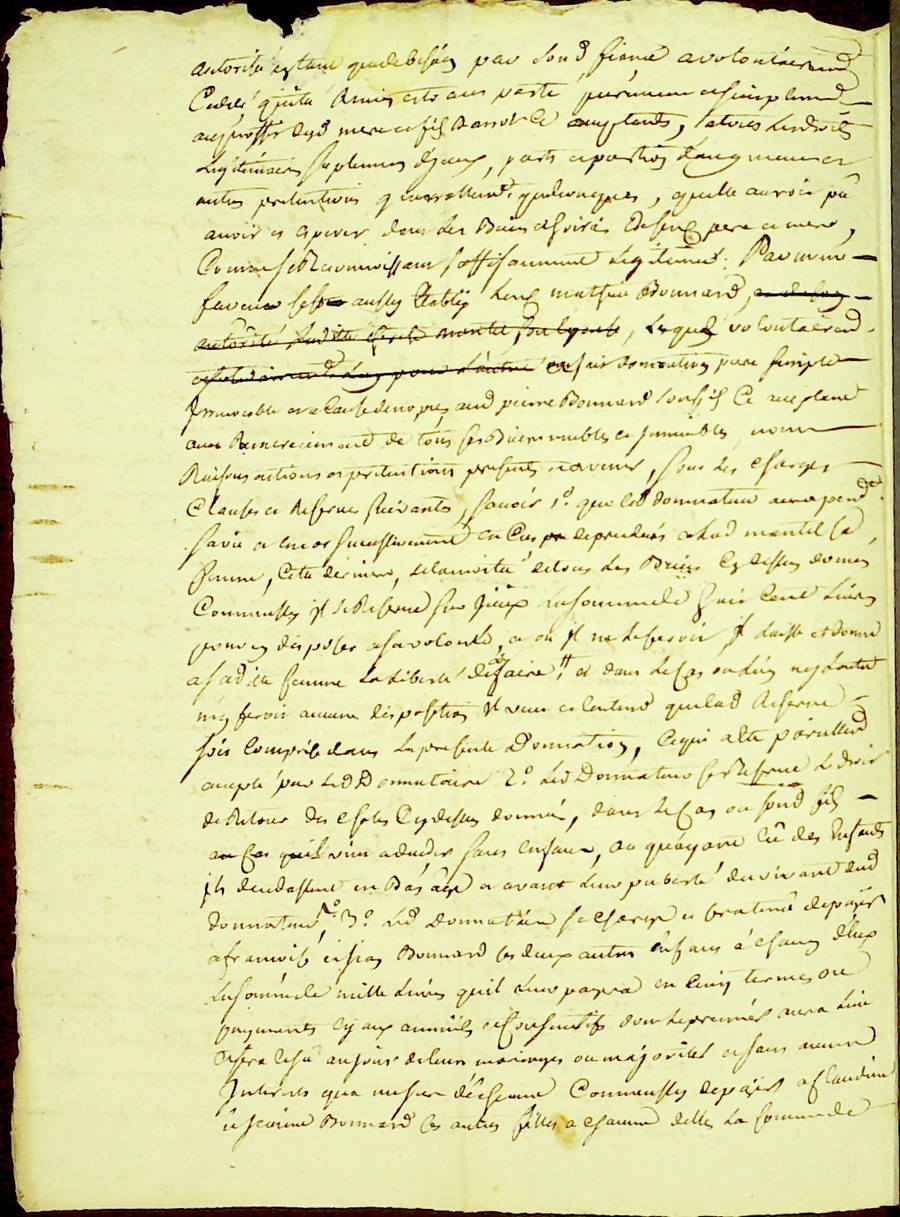 autorité entant que de besoin par son d. fiancé a volontairement
Cédé quitté Remis et transporté purement et simplement
auxd. mere et fils Bonnard acceptants, tous Les droits
Légitimaires suplement d'iceux, parts et portion d'augment et
autres prétentions généralement quelconques, qu'elle auroit pû
avoir et esperer dans Les Biens et hoiries de ses pere et mere,
Comme se Reconnoissant suffisamment Légitimée. Par même
faveur s'est aussy Etably Mathieu Bonnard,
autorité Ladite mantel son epouse, Lequel volontairement
L'un pour L'autre a fait donnation pure simple
Irrevocable a cause de nopces aud. pierre Bonnard son fils Ce acceptant
avec Remerciement de tous ses Biens meubles et immeubles, noms
Raisons actions et prétentions présents et avenir, sous les charges
Clauses et Reserves suivantes, savoir 1.o que led. donnateur aura pend.t
sa vie et encor successivement en Cas de predeces a lad. mantel sa
femme, Cette derniere, de la moitié de tous Les Biens Cy dessus donnés
Comme aussy il se Reserve sur iceux la somme de huit Cent Livres
pour en disposer a sa volonté, et où il ne le feroit il Laisse et donne
a sadite femme La Liberté de le faire, et dans le Cas ou L'un ny L'autre
n'en feroit aucune disposition il veut et entend que lad. Reserve
soit Comprise dans La presente Donnation, Ce qui a été pareillem.d
accepté par Led. Donnataire 2.o Led. Donnateur se Reserve Le droit
de Retour des choses Cy dessus données, dans le Cas ou sond. fils
vint a deceder sans enfans, ou qu'ayant Eû des Enfants
ils decedassent en Bas âge et avant Leur puberté du vivant dud.
donnateur, 3.o Led. Donnataire se charge et sera tenu de payer
a françois et Bonnard ses deux autres Enfans à chacun d'eux
La somme de mille Livres qu'il Leur payera en Cinq termes ou
payements égaux annuels et Consecutifs dont Le premier aura Lieu
et sera échu au jour de leurs mariages ou majorités et sans aucun
Interets qu'a mesure d'écheance Comme aussy de payer a Claudine
Bonnard ses autres filles a chacune d'elles La somme de